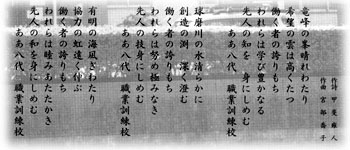 作詩 甲斐 雍人
作曲 宮部 喬子
竜峰の峯晴れわたり
希望の雲は高くたつ
働く者の誇りもち
われらは学び豊かなる
先人の和を 身にしめむ
ああ八代 職業訓練校
球磨川の水清らかに
創造の渕の 深く澄む
働く者の誇りもち
われらは努め極みなき
先人の技身にしめむ
ああ八代 職業訓練校
有明の海風ぎわたり
協力の虹遠く伸ぶ
働く者の誇りもち
われらは睦みあたたかき
先人の和を身にしめむ
ああ八代 職業訓練校